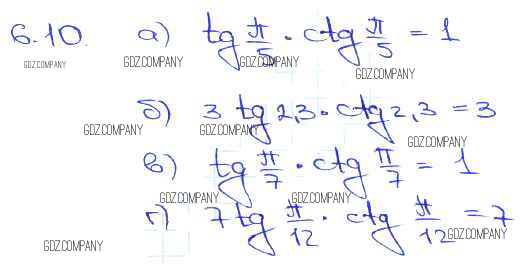 6.10. а) tg π/5 · ctg π/5 = 1
GDZ.COMPANY GDZ.COMPANY GDZ.COMPANY GDZ.COMPANY
б) 3 tg 2,3 · ctg 2,3 = 3
GDZ.COMPANY GDZ.COMPANY GDZ.COMPANY
в) tg π/7 · ctg π/7 = 1
GDZ.COMPANY GDZ.COMPANY
г) 7 tg π/12 · ctg π/12 = 7
GDZ.COMPANY GDZ.COMPANY